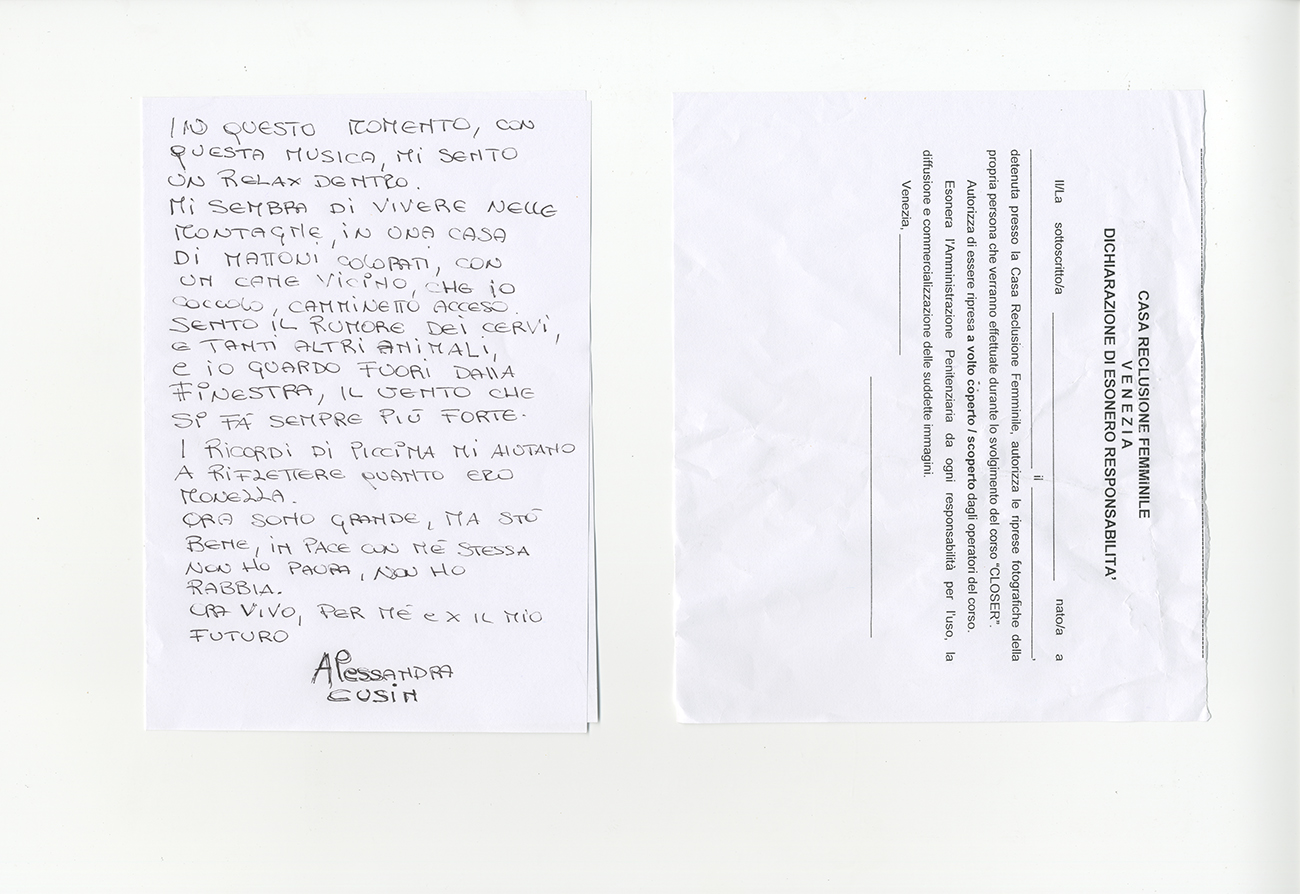 IN QUESTO MOMENTO, CON
QUESTA MUSICA, MI SENTO
UN RELAX DENTRO.
MI SEMBRA DI VIVERE NELLE
MONTAGNE, IN UNA CASA
DI MATTONI COLORATI, CON
UN CANE VICINO, CHE IO
COCCOLO, CAMMINETTO ACCESO.
SENTO IL RUMORE DEI CERVI,
E TANTI ALTRI ANIMALI,
E IO GUARDO FUORI DALLA
FINESTRA, IL VENTO CHE
SI FÀ SEMPRE PIÙ FORTE.
I RICORDI DI PICCINA MI AIUTANO
A RIFLETTERE QUANTO ERO
MONELLA.
ORA SONO GRANDE, MA STÒ
BENE, IN PACE CON MÉ STESSA
NON HO PAURA, NON HO
RABBIA.
ORA VIVO, PER MÉ E X IL MIO
FUTURO
ALESSANDRA
CUSIN
CASA RECLUSIONE FEMMINILE
V E N E Z I A
DICHIARAZIONE DI ESONERO RESPONSABILITA'
Il/La sottoscritto/a ____________________ nato/a a
____________________ il ____________________,
detenuta presso la Casa Reclusione Femminile, autorizza le riprese fotografiche della
propria persona che verranno effettuate durante lo svolgimento del corso "CLOSER".
Autorizza di essere ripresa a volto coperto / scoperto dagli operatori del corso.
Esonera l'Amministrazione Penitenziaria da ogni responsabilità per l'uso, la
diffusione e commercializzazione delle suddette immagini.
Venezia, ____________________